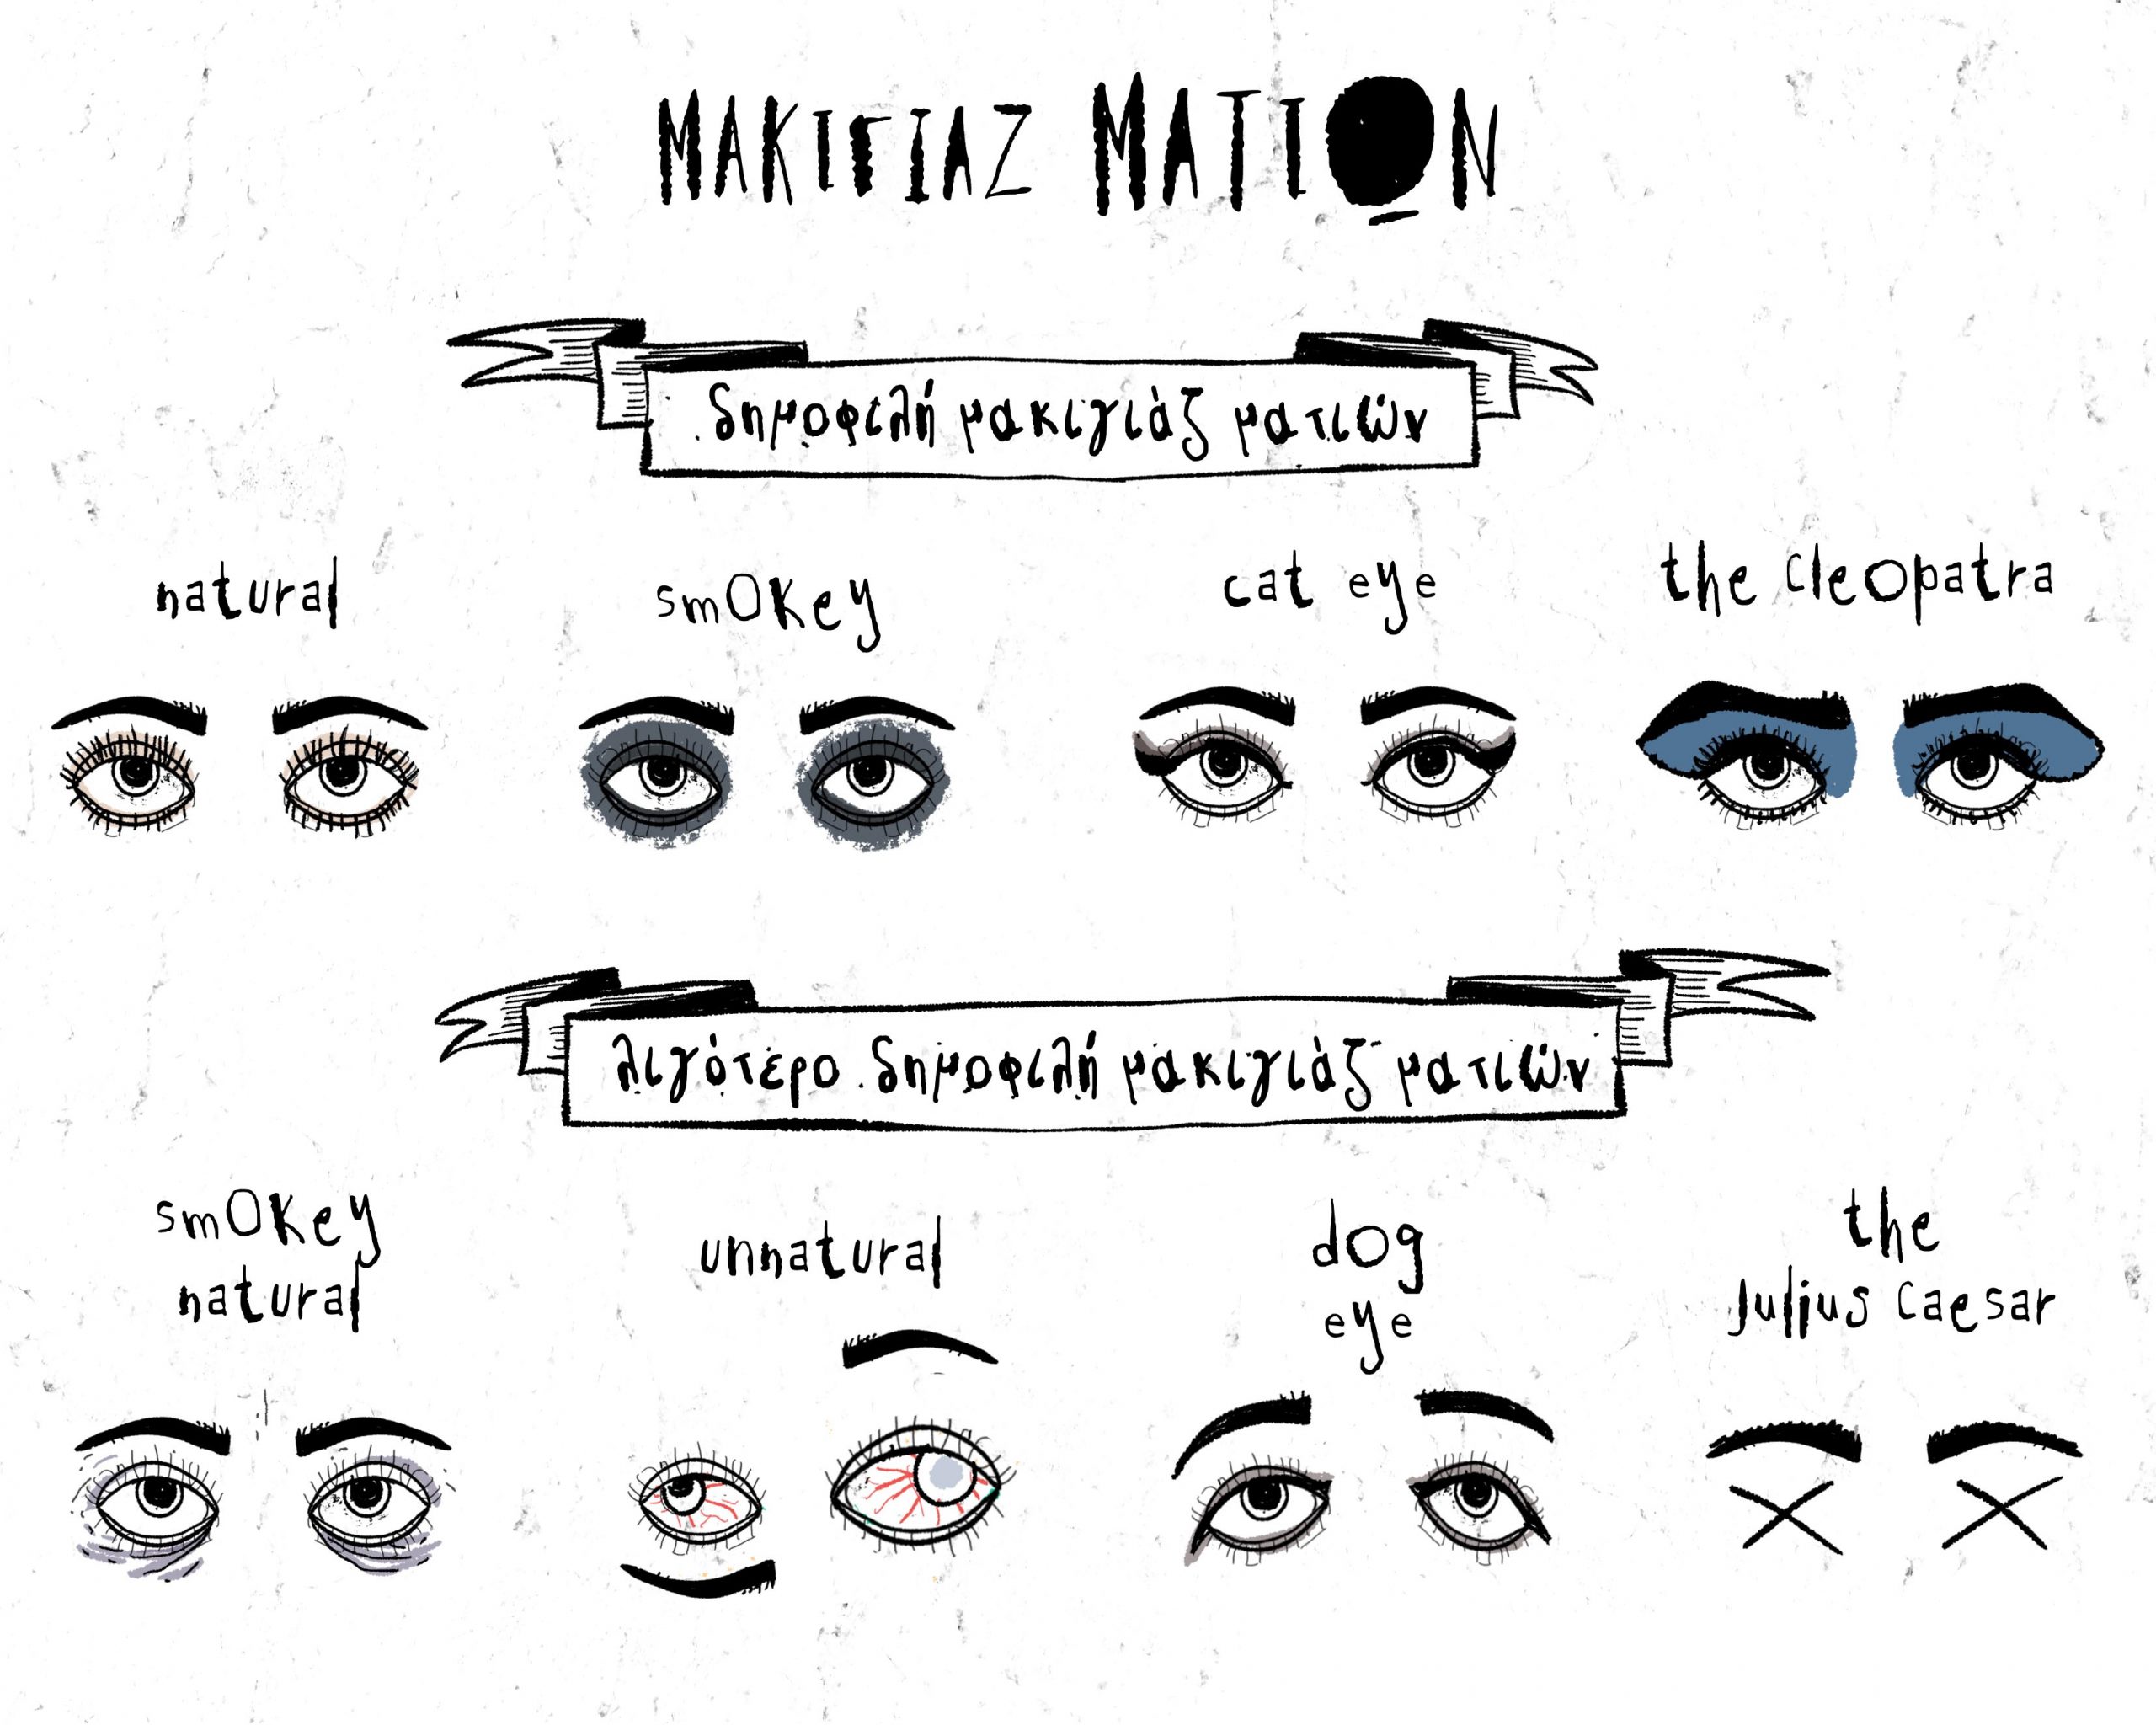 ΜΑΚΙΓΙΑΖ ΜΑΤΙΩΝ
δημοφιλή μακιγιάζ ματιών
natural
smokey
cat eye
the cleopatra
λιγότερο δημοφιλή μακιγιάζ ματιών
smokey
natural
unnatural
dog
eye
the
Julius Caesar